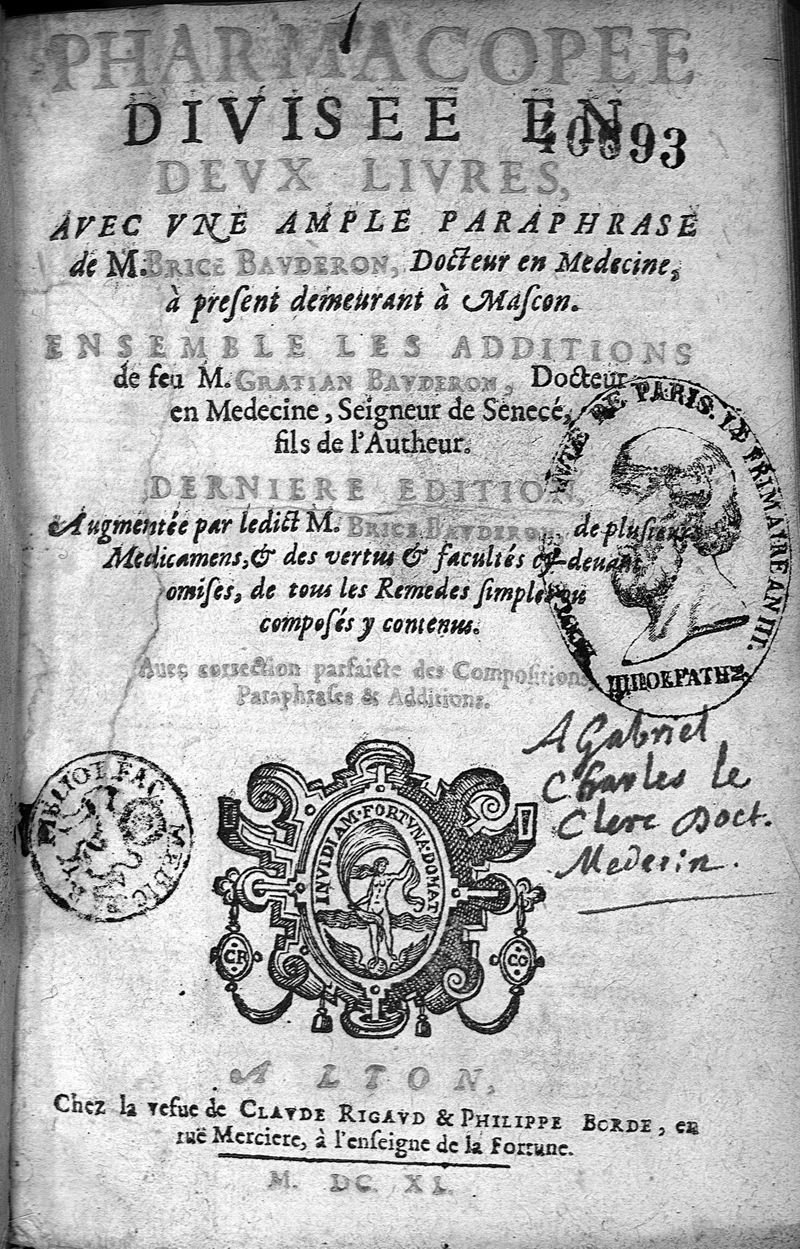 PHARMACOPEE
DIVISEE EN
40693
DEVX LIVRES,
AVEC VNE AMPLE PARAPHRASE
de M. BRICE BAVDERON, Docteur en Medecine,
à preſent demeurant à Maſcon.
ENSEMBLE LES ADDITIONS
de feu M. GRATIAN BAVDERON, Docteur
en Medecine, Seigneur de Senecé,
fils de l'Autheur.
DERNIERE EDITION,
Augmentée par ledict M. BRICE BAVDERON, de pluſieurs
Medicamens, & des vertus & facultés cy-deuant
omiſes, de tous les Remedes ſimples ou
compoſés y contenus.
Auec correction parfaicte des Compositions,
Paraphraſes & Additions.
DE PARIS.
PRIMAIRE AN III.
A Gabriel
Charles le
Clerc Doct.
Medecin.
BIBLIOT. FAC. MEDIC.
INVIDIAM FORTVNA DOMAT
CR
CO
A LYON,
Chez la vefue de CLAVDE RIGAVD & PHILIPPE BORDE, en
ruë Merciere, à l'enſeigne de la Fortune.
M. DC. XL.